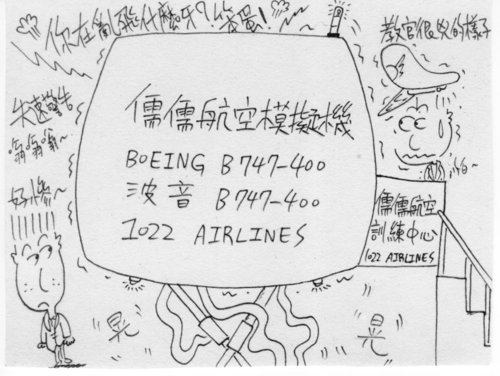 你在亂飛什麼呀?笨蛋!
教官很兇的樣子
失速警告
嗡嗡嗡~
好慘~
儒儒航空模擬機
BOEING B747-400
波音 B747-400
1022 AIRLINES
儒儒航空
訓練中心
1022 AIRLINES
晃
晃